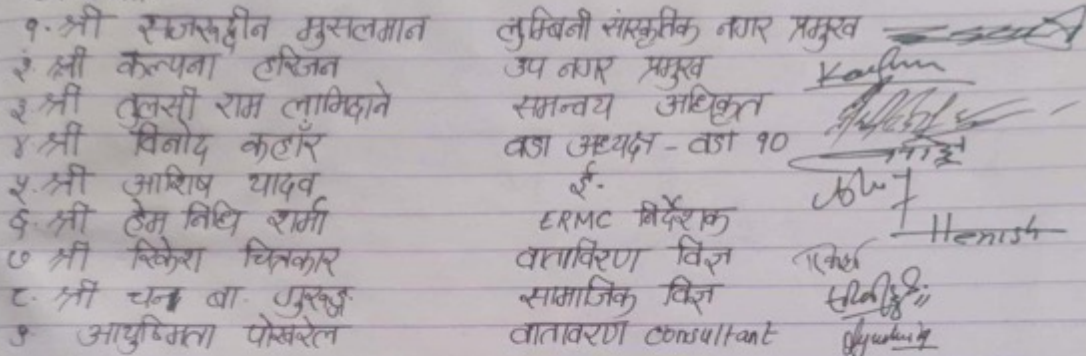 १. श्री सजरुद्दीन मुसलमान लुम्बिनी सांस्कृतिक नगर प्रमुख
२. श्री कल्पना हरिजन उप नगर प्रमुख
३ श्री तुलसी राम लामिछाने समन्वय अधिकृत
४ श्री विनोद कहाँर वडा अध्यक्ष - वडा १०
५. श्री आशिष यादव ई.
६. श्री हेम निधि शर्मा ERMC निर्देशक Hemish
७ श्री रिकेश चित्रकार वातावरण विज्ञ
८. श्री चन्द्र बा. गुरुङ्ग सामाजिक विज्ञ
९ आयुष्मिता पोखरेल वातावरण consultant